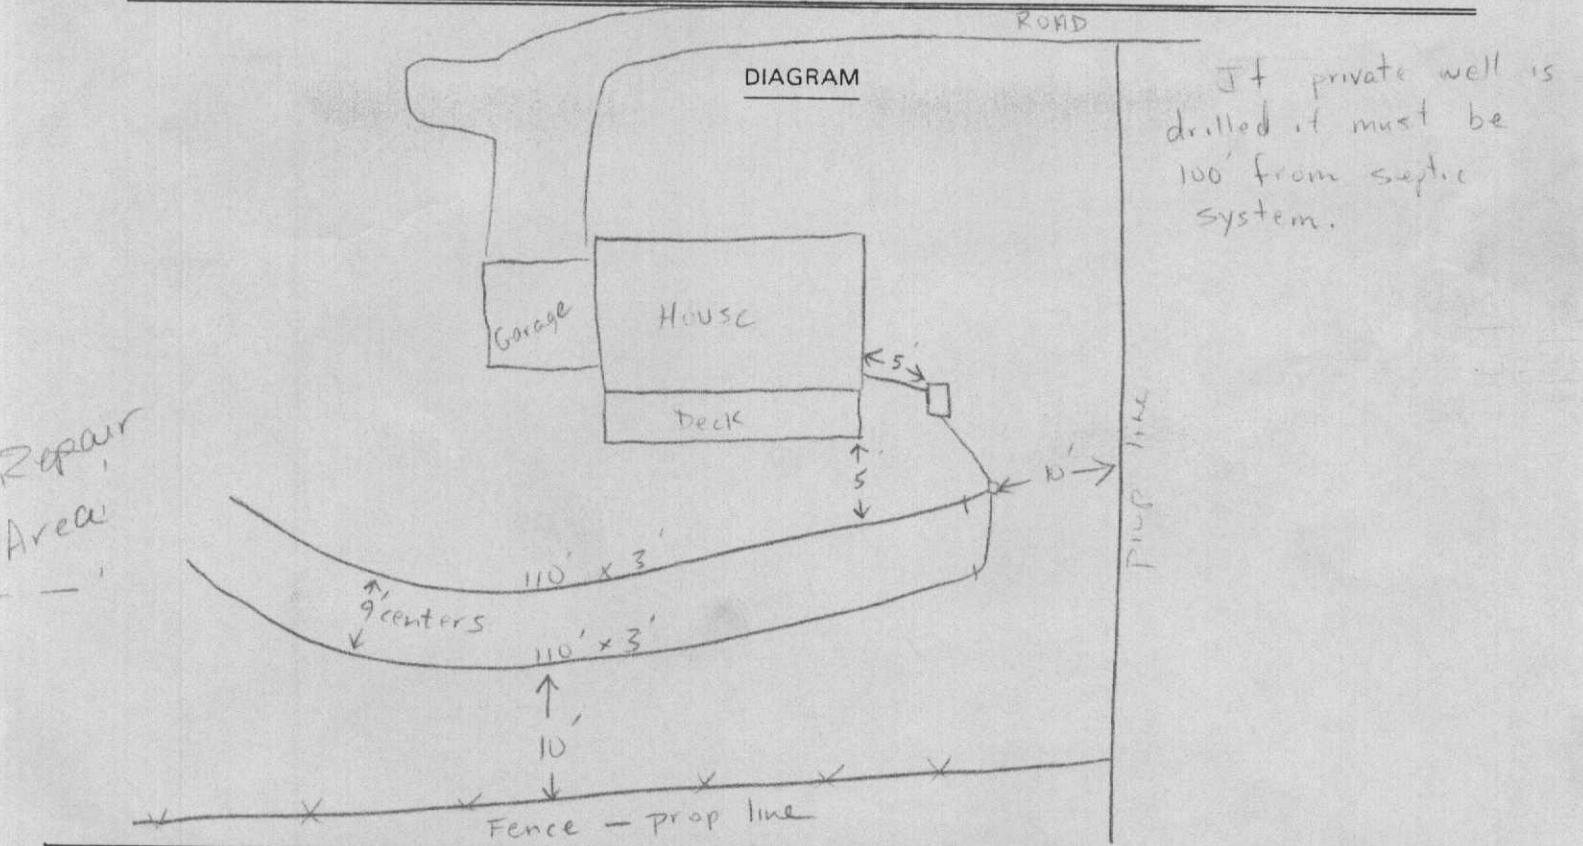 ROAD
DIAGRAM
If private well is
drilled it must be
100' from septic
system.
Garage
House
5'
Deck
Repair
Area
5'
10'
Prop line
110' x 3'
9' centers
110' x 3'
10'
Fence – prop line